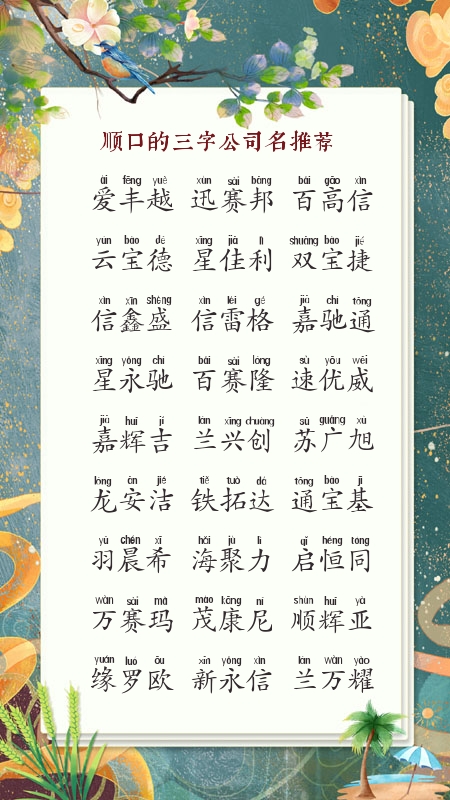 顺口的三字公司名推荐
ài fēng yuè xùn sài bāng bǎi gāo xìn
爱丰越 迅赛邦 百高信
yún bǎo dé xīng jiā lì shuāng bǎo jié
云宝德 星佳利 双宝捷
xìn xīn shèng xìn léi gé jiā chí tōng
信鑫盛 信雷格 嘉驰通
xīng yǒng chí bǎi sài lóng sù yōu wēi
星永驰 百赛隆 速优威
jiā huī jí lán xīng chuàng sū guǎng xù
嘉辉吉 兰兴创 苏广旭
lóng ān jié tiě tuò dá tōng bǎo jī
龙安洁 铁拓达 通宝基
yǔ chén xī hǎi jù lì qǐ héng tóng
羽晨希 海聚力 启恒同
wàn sài mǎ mào kāng ní shùn huī yà
万赛玛 茂康尼 顺辉亚
yuán luó ōu xīn yǒng xìn lán wàn yào
缘罗欧 新永信 兰万耀